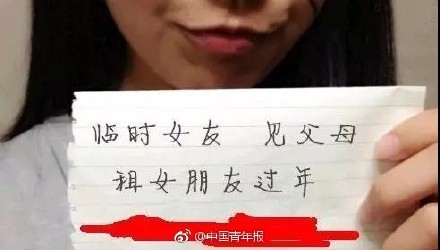 临时女友 见父母
租女朋友过年
@中国青年报